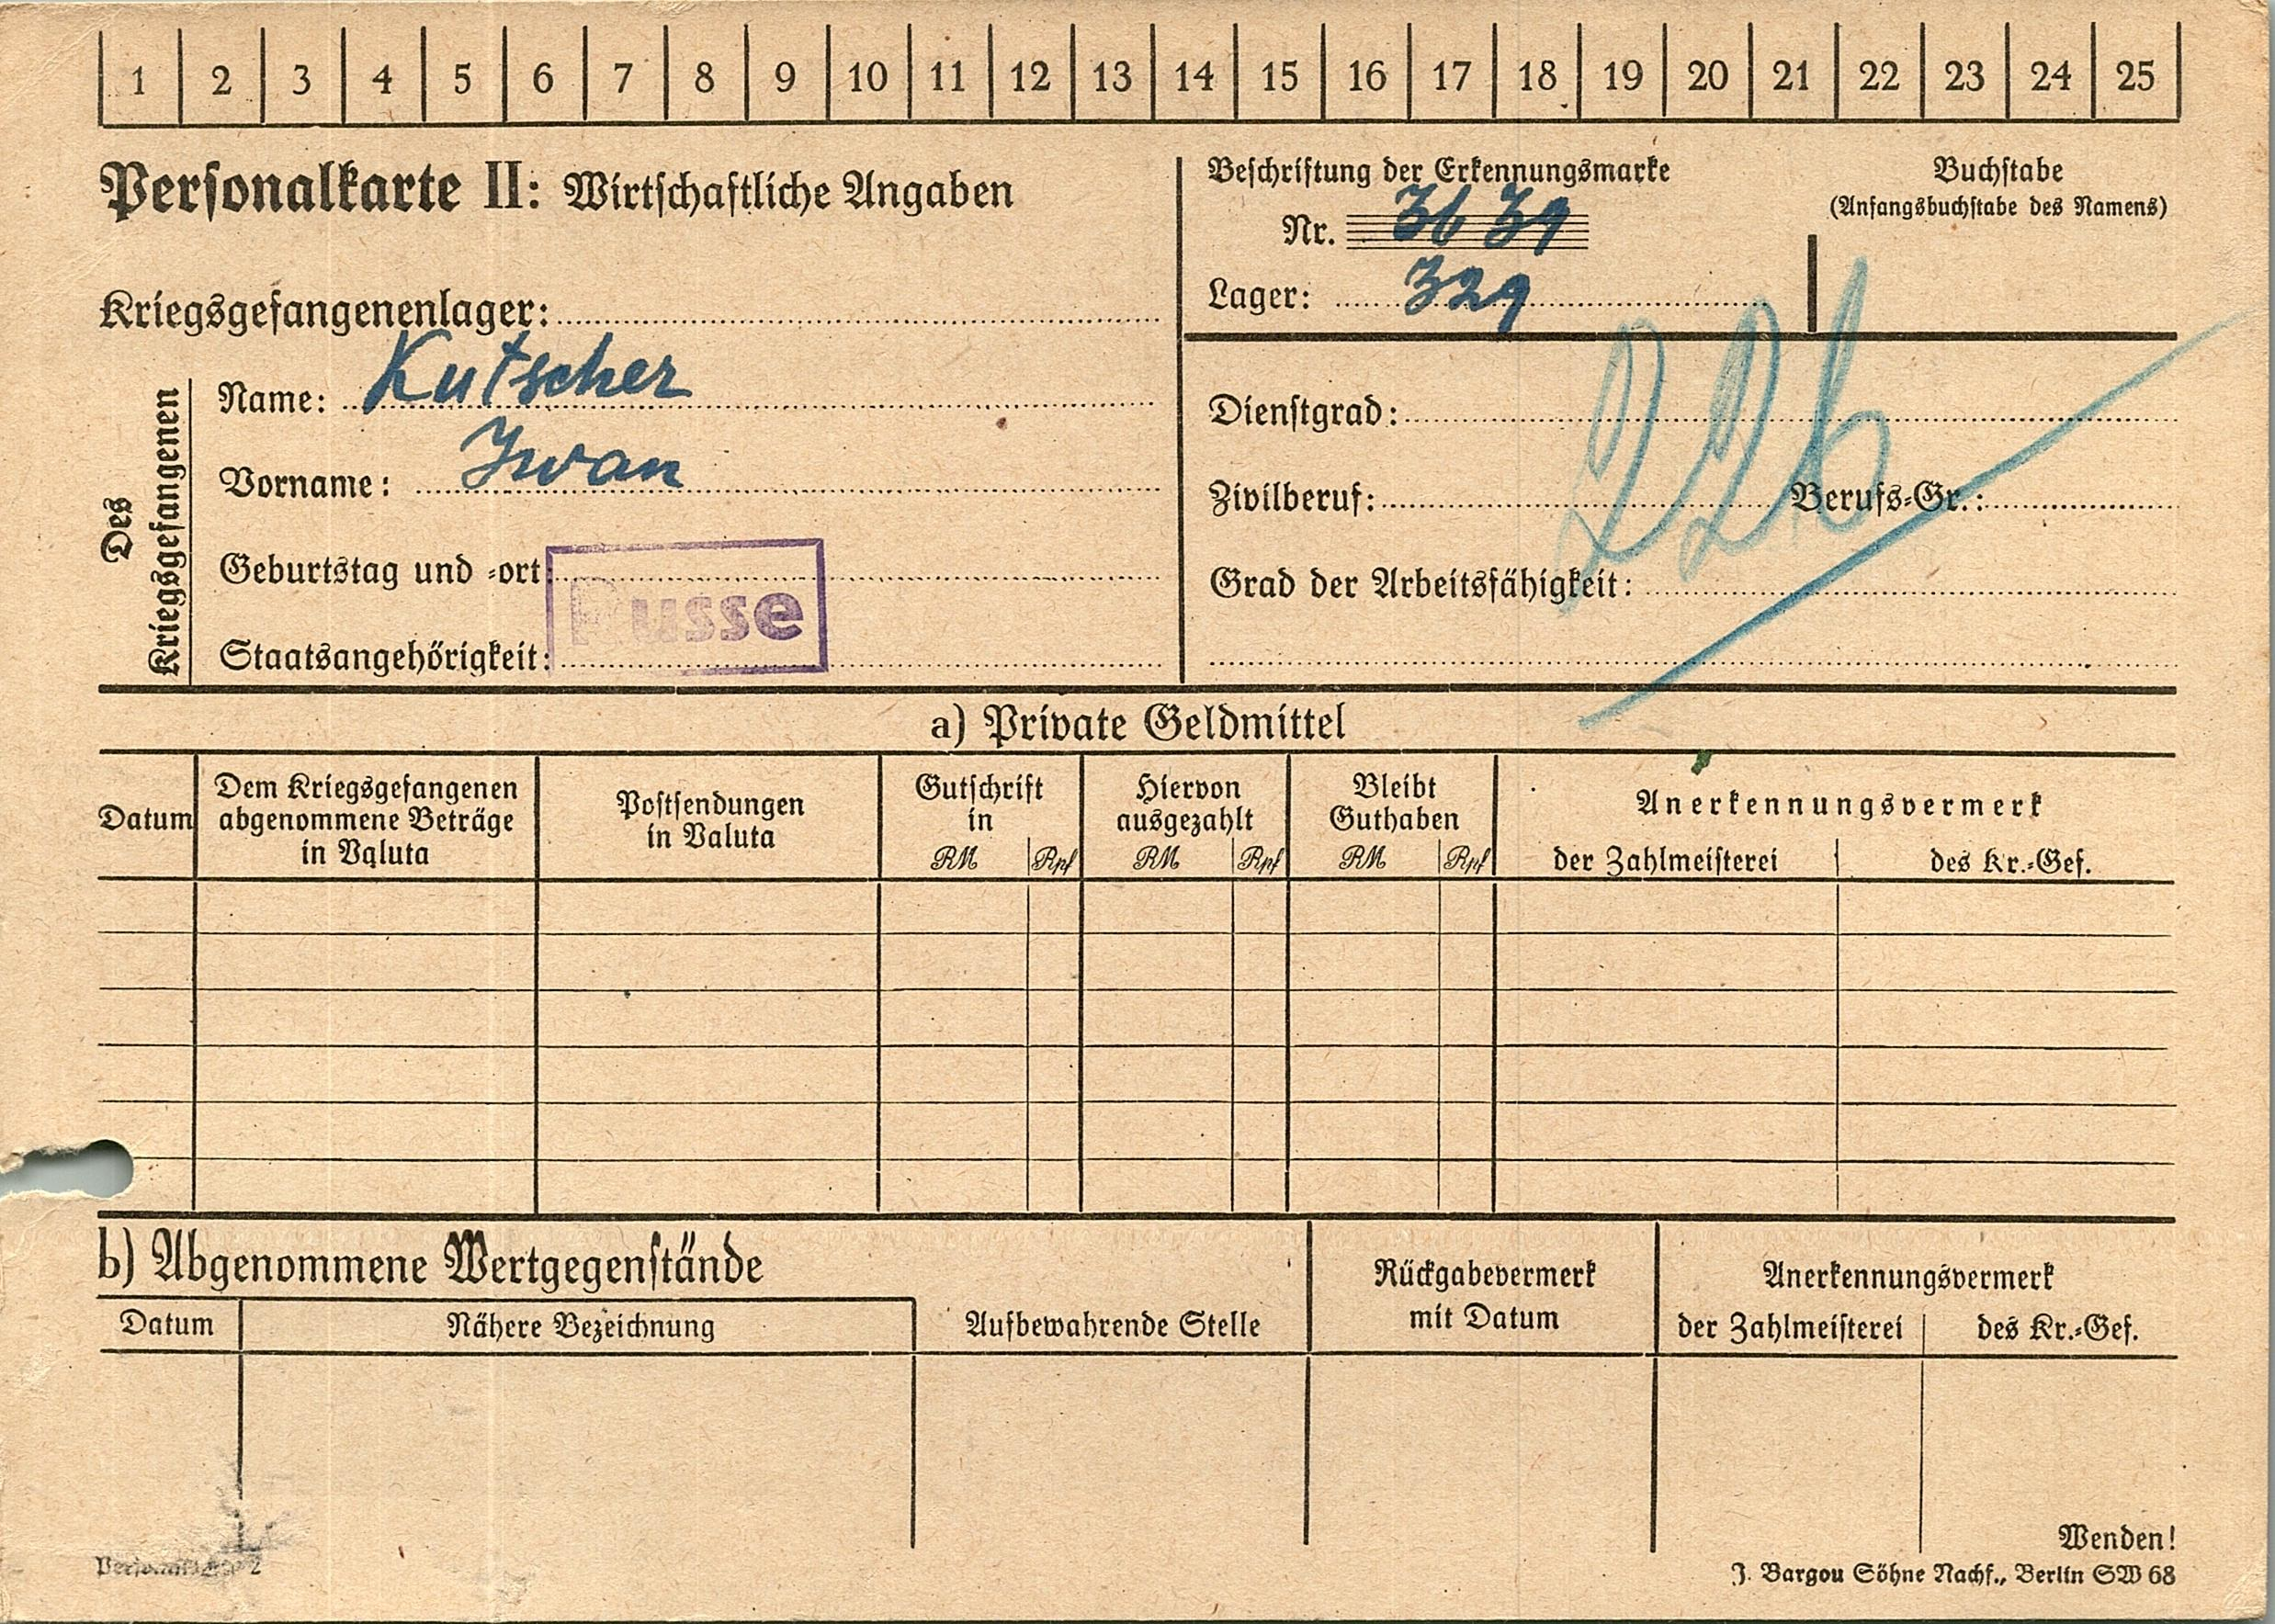 1 2 3 4 5 6 7 8 9 10 11 12 13 14 15 16 17 18 19 20 21 22 23 24 25
Personalkarte II: Wirtschaftliche Angaben
Beschriftung der Erkennungsmarke
Nr. 3639
Lager: 329
Buchstabe
(Anfangsbuchstabe des Namens)
Kriegsgefangenenlager:
Des
Kriegsgefangenen
Name: Kutscher
Vorname: Iwan
Geburtstag und -ort:
Staatsangehörigkeit:
Russe
226
Dienstgrad:
Zivilberuf: Berufs-Gr.:
Grad der Arbeitsfähigkeit:
a) Private Geldmittel
Datum
Dem Kriegsgefangenen
abgenommene Beträge
in Valuta
Postsendungen
in Valuta
Gutschrift
in
RM Rpf
Hiervon
ausgezahlt
RM Rpf
Bleibt
Guthaben
RM Rpf
Anerkennungsvermerk
der Zahlmeisterei des Kr.-Gef.
b) Abgenommene Wertgegenstände
Datum Nähere Bezeichnung
Aufbewahrende Stelle
Rückgabevermerk
mit Datum
Anerkennungsvermerk
der Zahlmeisterei des Kr.-Gef.
Wenden!
J. Bargou Söhne Nachf., Berlin SW 68